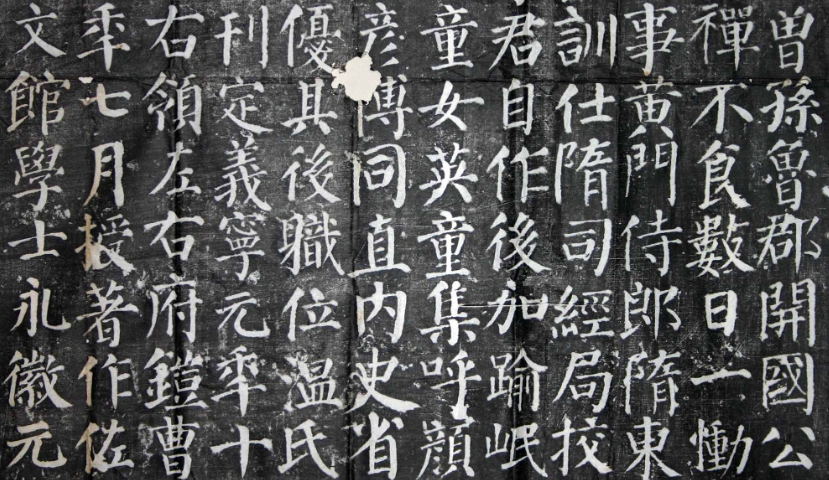 曽孫魯郡開國公
禪不食數日一慟
事黄門侍郎隋東
訓仕隋司經局挍
君自作後加踰岷
童女英童集呼顔
彦博同直内史省
優其後職位温氏
刊定義寧元年十
右領左右府鎧曹
年七月授著作佐
文館學士永徽元